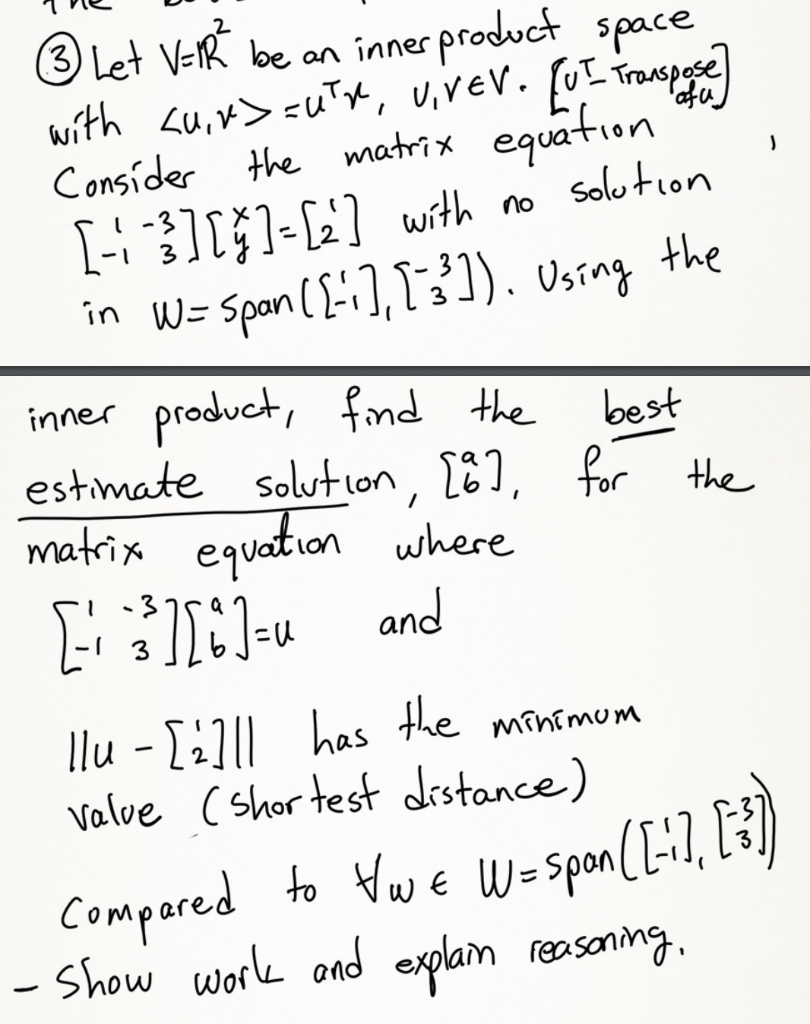 ③ Let V=ℝ² be an inner product space
with <u,v> = uᵀv, u,v∈V. [uᵀ- Transpose of u]
Consider the matrix equation ,
[1 -3; -1 3][x; y]=[1; 2] with no solution
in W= span([1; -1], [-3; 3]). Using the
inner product, find the best
estimate solution, [a; b], for the
matrix equation where
[1 -3; -1 3][a; b]=u and
||u - [1; 2]|| has the minimum
value (shortest distance)
Compared to ∀w ∈ W=span([1; -1], [-3; 3])
- Show work and explain reasoning.